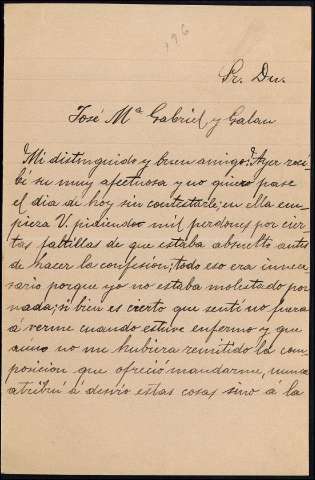 196
Sr. Dn.
José Mª Gabriel y Galan
Mi distinguido y buen amigo: Ayer reci-
bí su muy afectuosa y no quiero pase
el dia de hoy sin contestarle; en ella em-
pieza V. pidiendo mil perdones por cier-
tas faltillas de que estaba absuelto antes
de hacer la confesion; todo eso era innece-
sario porque yo no estaba molestado por
nada; si bien es cierto que sentí no fuera
á verme cuando estuve enfermo y que
aún no me hubiera remitido la com-
posicion que ofreció mandarme, nunca
atribuí á desvío estas cosas sino á la